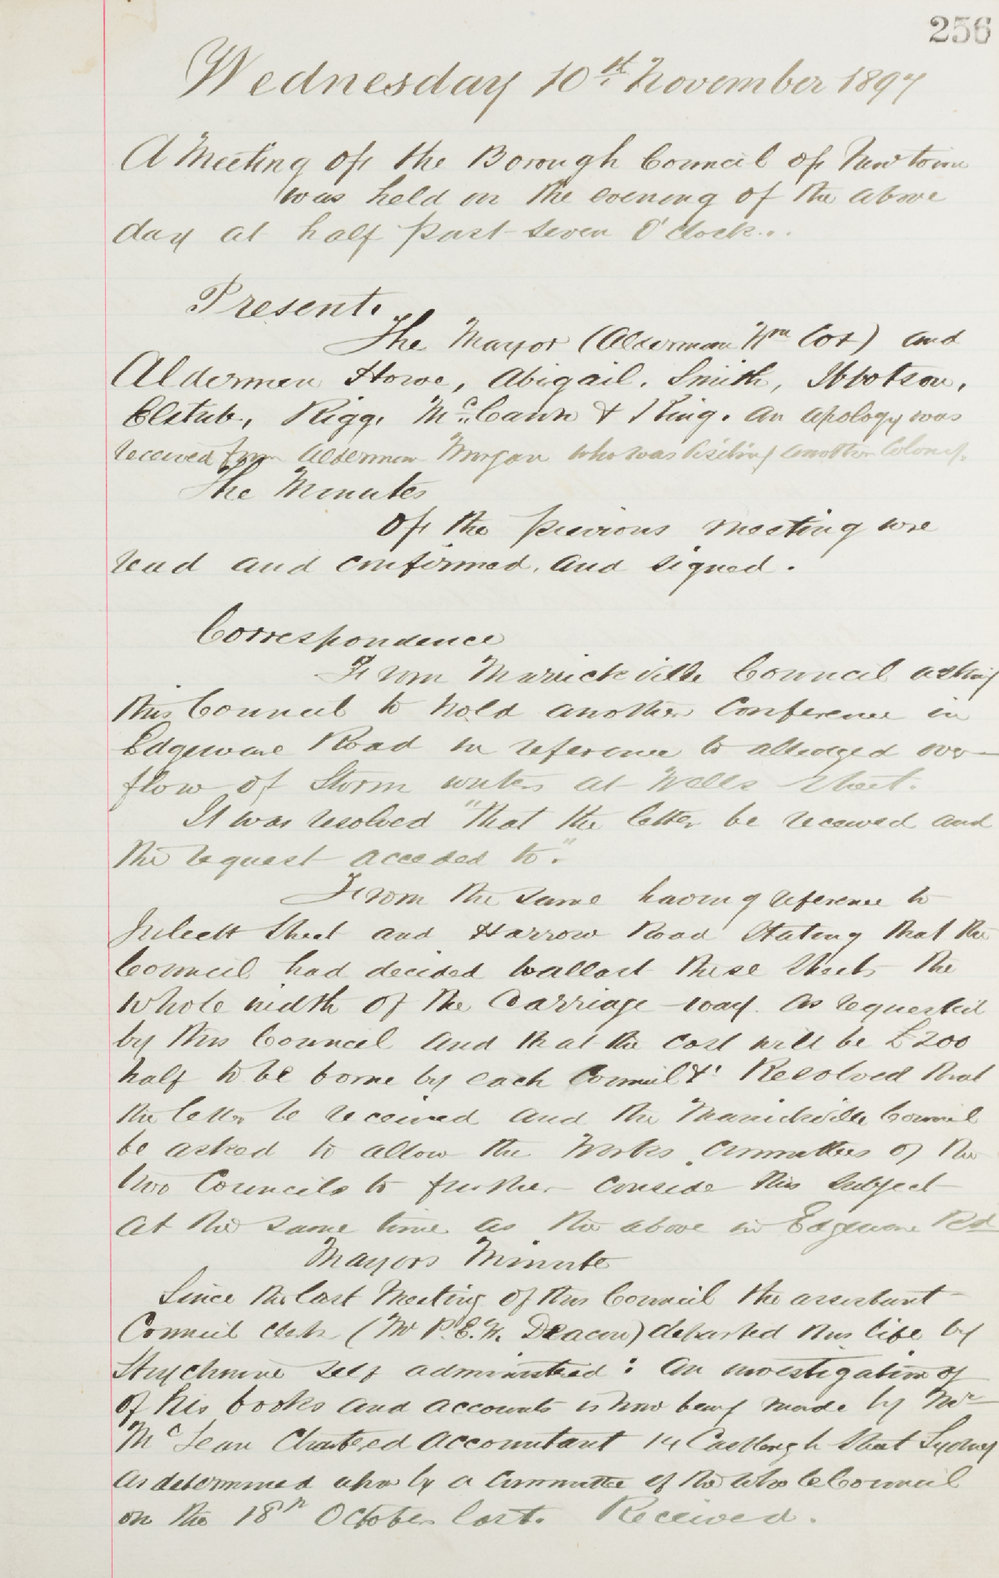 256
Wednesday 10th November 1897
A Meeting of the Borough Council of Newtown
was held in the evening of the above
day at half past seven O'Clock...
Present.
The Mayor (Alderman Wm Cox) and
Aldermen Howe, Abigail, Smith, Ibbotson,
Elstub, Rigg, McCann & King. An apology was
received from Alderman Morgan who was visiting another Colony.
The Minutes
Of the previous meeting were
read and confirmed, and signed.
Correspondence
From Marrickville Council asking
this Council to hold another Conference in
Edgeware Road in reference to alledged over-
flow of Storm waters at Wells Street.
It was resolved "that the letter be received and
the request acceded to."
From the same having reference to
Juliett Street and Harrow Road Stating that the
Council had decided to ballast these Streets the
whole width of the Carriage-way as requested
by this Council and that the cost will be £200
half to be borne by each Council & Resolved that
the letter be received and the Marrickville Council
be asked to allow the Works Committees of the
two Councils to further conside this subject
at the same time as the above in Edgeware Rd
Mayors Minute
Since the last Meeting of this Council the assistant
Council clerk (Mr P.E.W. Deacon) departed this life by
Strychnine self administred: an investigation of
of his books and accounts is now being made by Mr
McLean Chartered Accountant 14 Castlereagh Street Sydney
as determined upon by a Committee of the whole Council
on the 18th October last. Received.